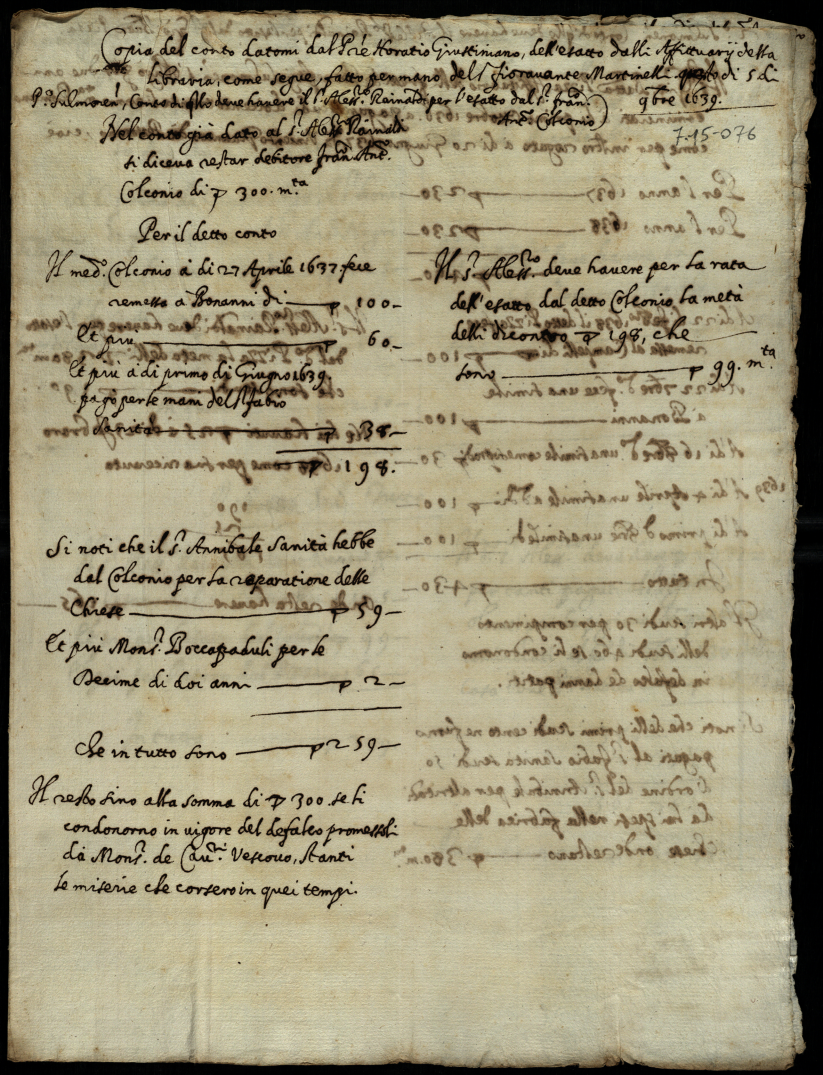 Copia del conto datomi dal P're Horatio Giustiniano, dell'esatto dalli Affittuarij della
libraria, come segue, fatto per mano del S.r Fioravante Martinelli questo di 5 di
9bre 1639.
Conto di q'llo deve havere il S.r Aless.o Rainaldi per l'esatto dal S.r Fran.
Ant.o Colconio)
7-15-076
Nel conto già dato al S.r Aless.o Rainaldi
si diceva restar debitore Fran. Ant.o
Colconio di ₽ 300. m.ta
Per il detto conto
Il med.o Colconio à di 27 Aprile 1637. fece
remessa à Bonanni di — ₽ 100 –
Et più — 60 –
Et più à di primo di Giugno 1639.
pagò per le mani del S.r Fabio
Sanità — ₽ 38 –
₽ 198.
Il S.r Aless.ro deve havere per la rata
dell'esatto dal detto Colconio la metà
delli dicontro ₽ 198, che
sono — ₽ 99. m.ta
Si noti che il S.r Annibale Sanità hebbe
dal Colconio per la reparatione delle
Chiese — ₽ 59 –
Et più Mons.r Boccapaduli per le
Decime di doi anni — ₽ 2 –
che in tutto sono — ₽ 259 –
Il resto sino alla somma di ₽ 300. se li
condonorno in vigore del defalco promessoli
da Mons.r de Vescovo, stanti
le miserie che corsero in quei tempi.